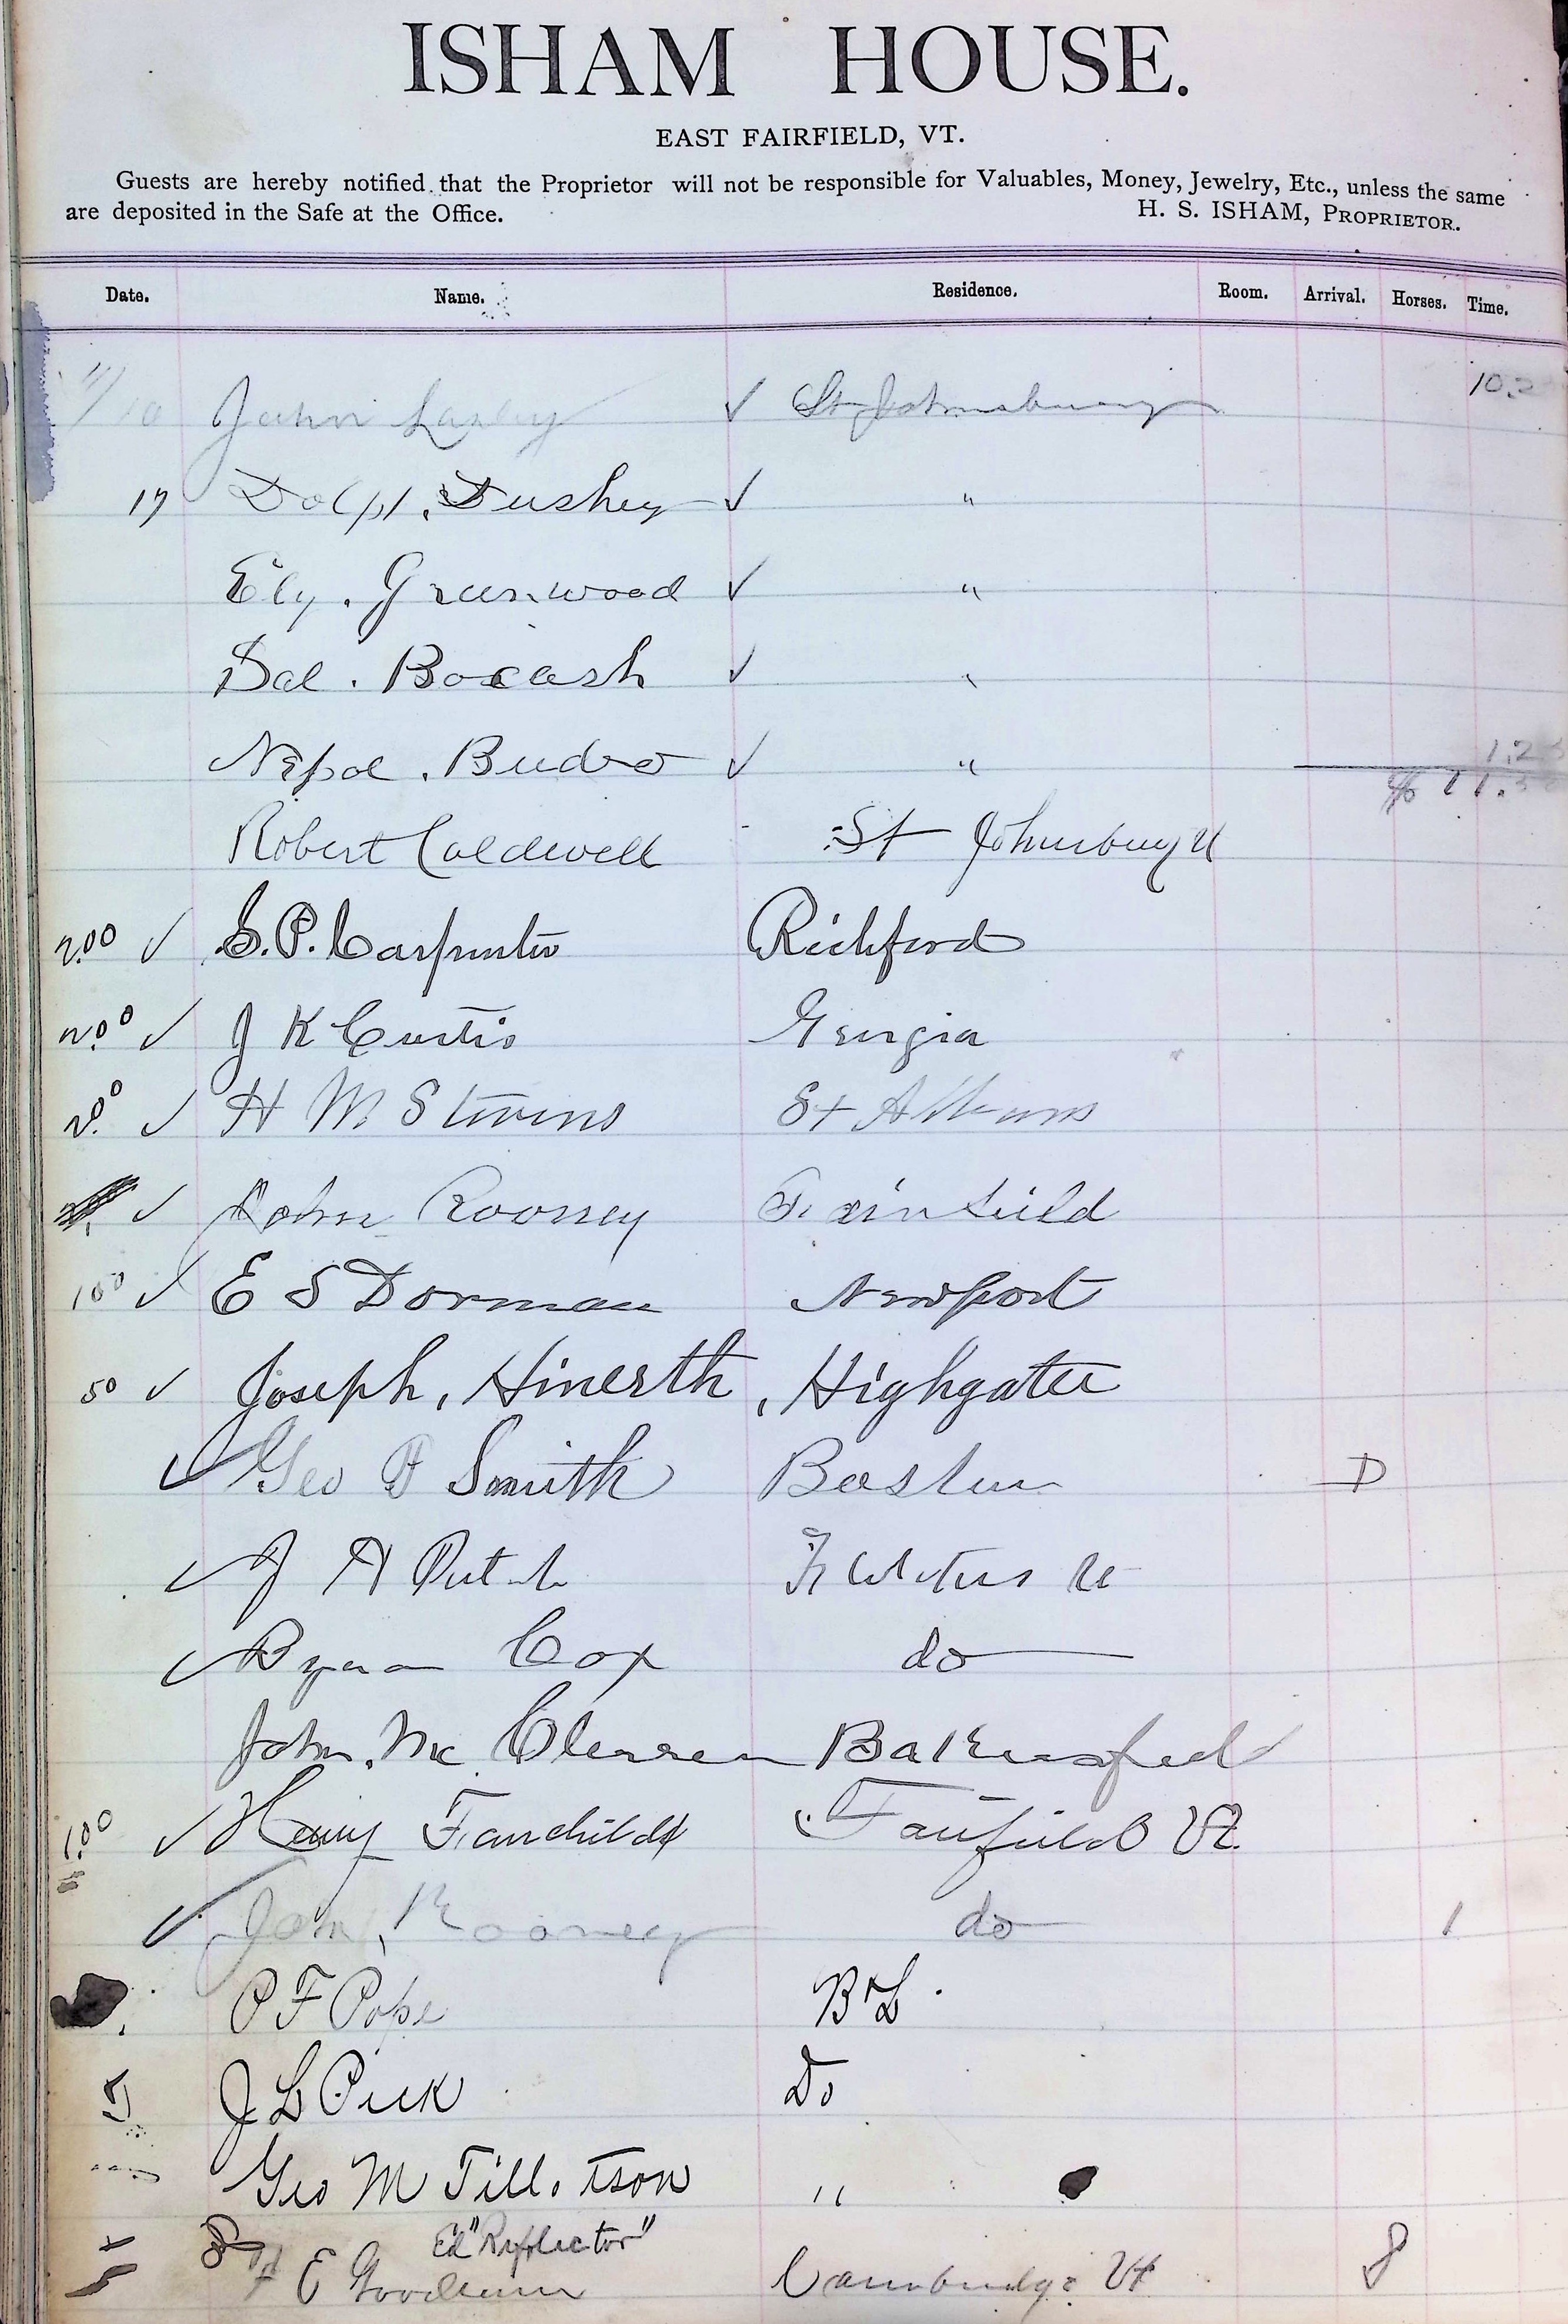 ISHAM HOUSE.
EAST FAIRFIELD, VT.
Guests are hereby notified that the Proprietor will not be responsible for Valuables, Money, Jewelry, Etc., unless the same
are deposited in the Safe at the Office. H. S. ISHAM, PROPRIETOR.
Date. Name. Residence. Room. Arrival. Horses. Time.
John ✓ St Johnsbury 10.2
17 Dolph. Dushey ✓ "
Ely. Greenwood ✓ "
Bocash ✓ "
Nepol. Budro ✓ " 1.25
Robert Caldwell St Johnsbury Vt $ 11.50
2.00 ✓ S. P. Carpenter Richford
2.00 ✓ J K Curtis Georgia
2.00 ✓ H M Stevens St Albans
✓ John Rooney Fairfield
1 00 ✓ E S Dorman Newport
50 ✓ Joseph, Hinerth, Highgate
✓ Geo F Smith Boston D
✓ J H
✓ Byron Cox do
John. Mc Bakersfield
1.00 ✓ Henry Fairchild Fairfield Vt.
✓ John, Rooney do 1
P F Pope B & L.
J L Peck Do
Geo M Tillotson "
Ed "Reflector"
F E Goodman Cambridge Vt 8